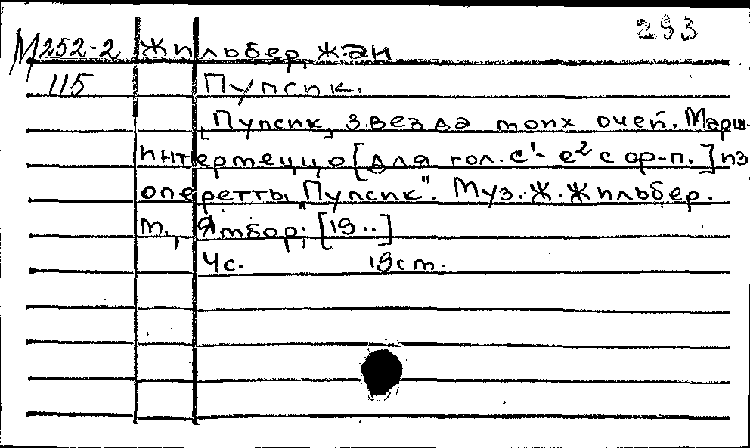 293
М252-2 Жильбер, Жан
115 Пупсик.
"Пупсик, звезда моих очей. Марш-
интермеццо [для гол. c¹- e² с ор-п.] из
оперетты "Пупсик". Муз. Ж. Жильбер.
М., Ямбор, [19..]
4с. 19см.